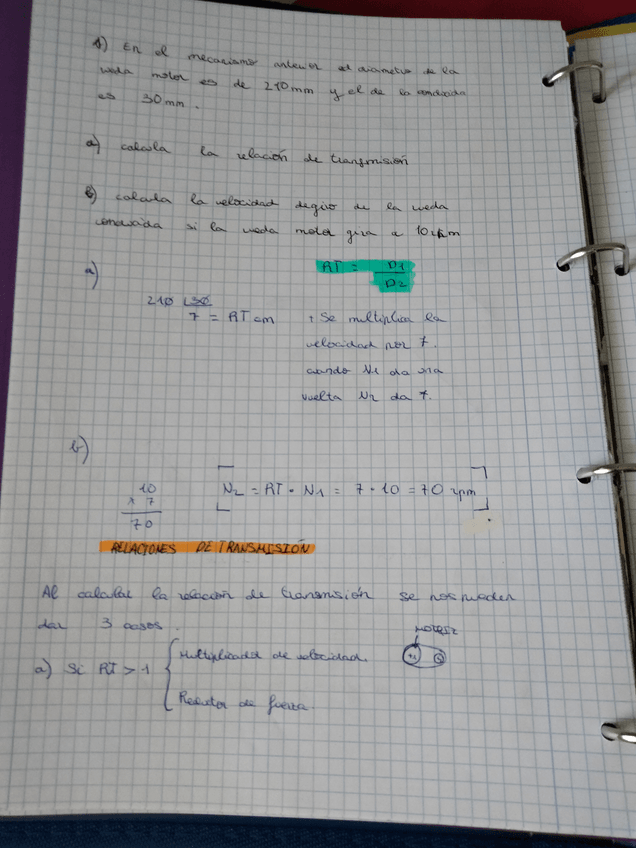 1) En el mecanismo anterior el diametro de la
rueda motor es de 210mm y el de la conducida
es 30mm.
a) calcula la relación de transmisión
b) calcula la velocidad de giro de la rueda
conducida si la rueda motor gira a 10rpm
a)
RT = D1
D2
210 30
7 = RT cm
+ Se multiplica la
velocidad por 7.
cuando N1 da una
vuelta N2 da 7.
b)
10
x 7
70
N2 = RT · N1 = 7 · 10 = 70 rpm
RELACIONES DE TRANSMISIÓN
Al calcular la relación de transmisión se nos pueden
dar 3 casos.
MOTRIZ
a) Si RT > 1
Multiplicador de velocidad.
Reductor de fuerza.